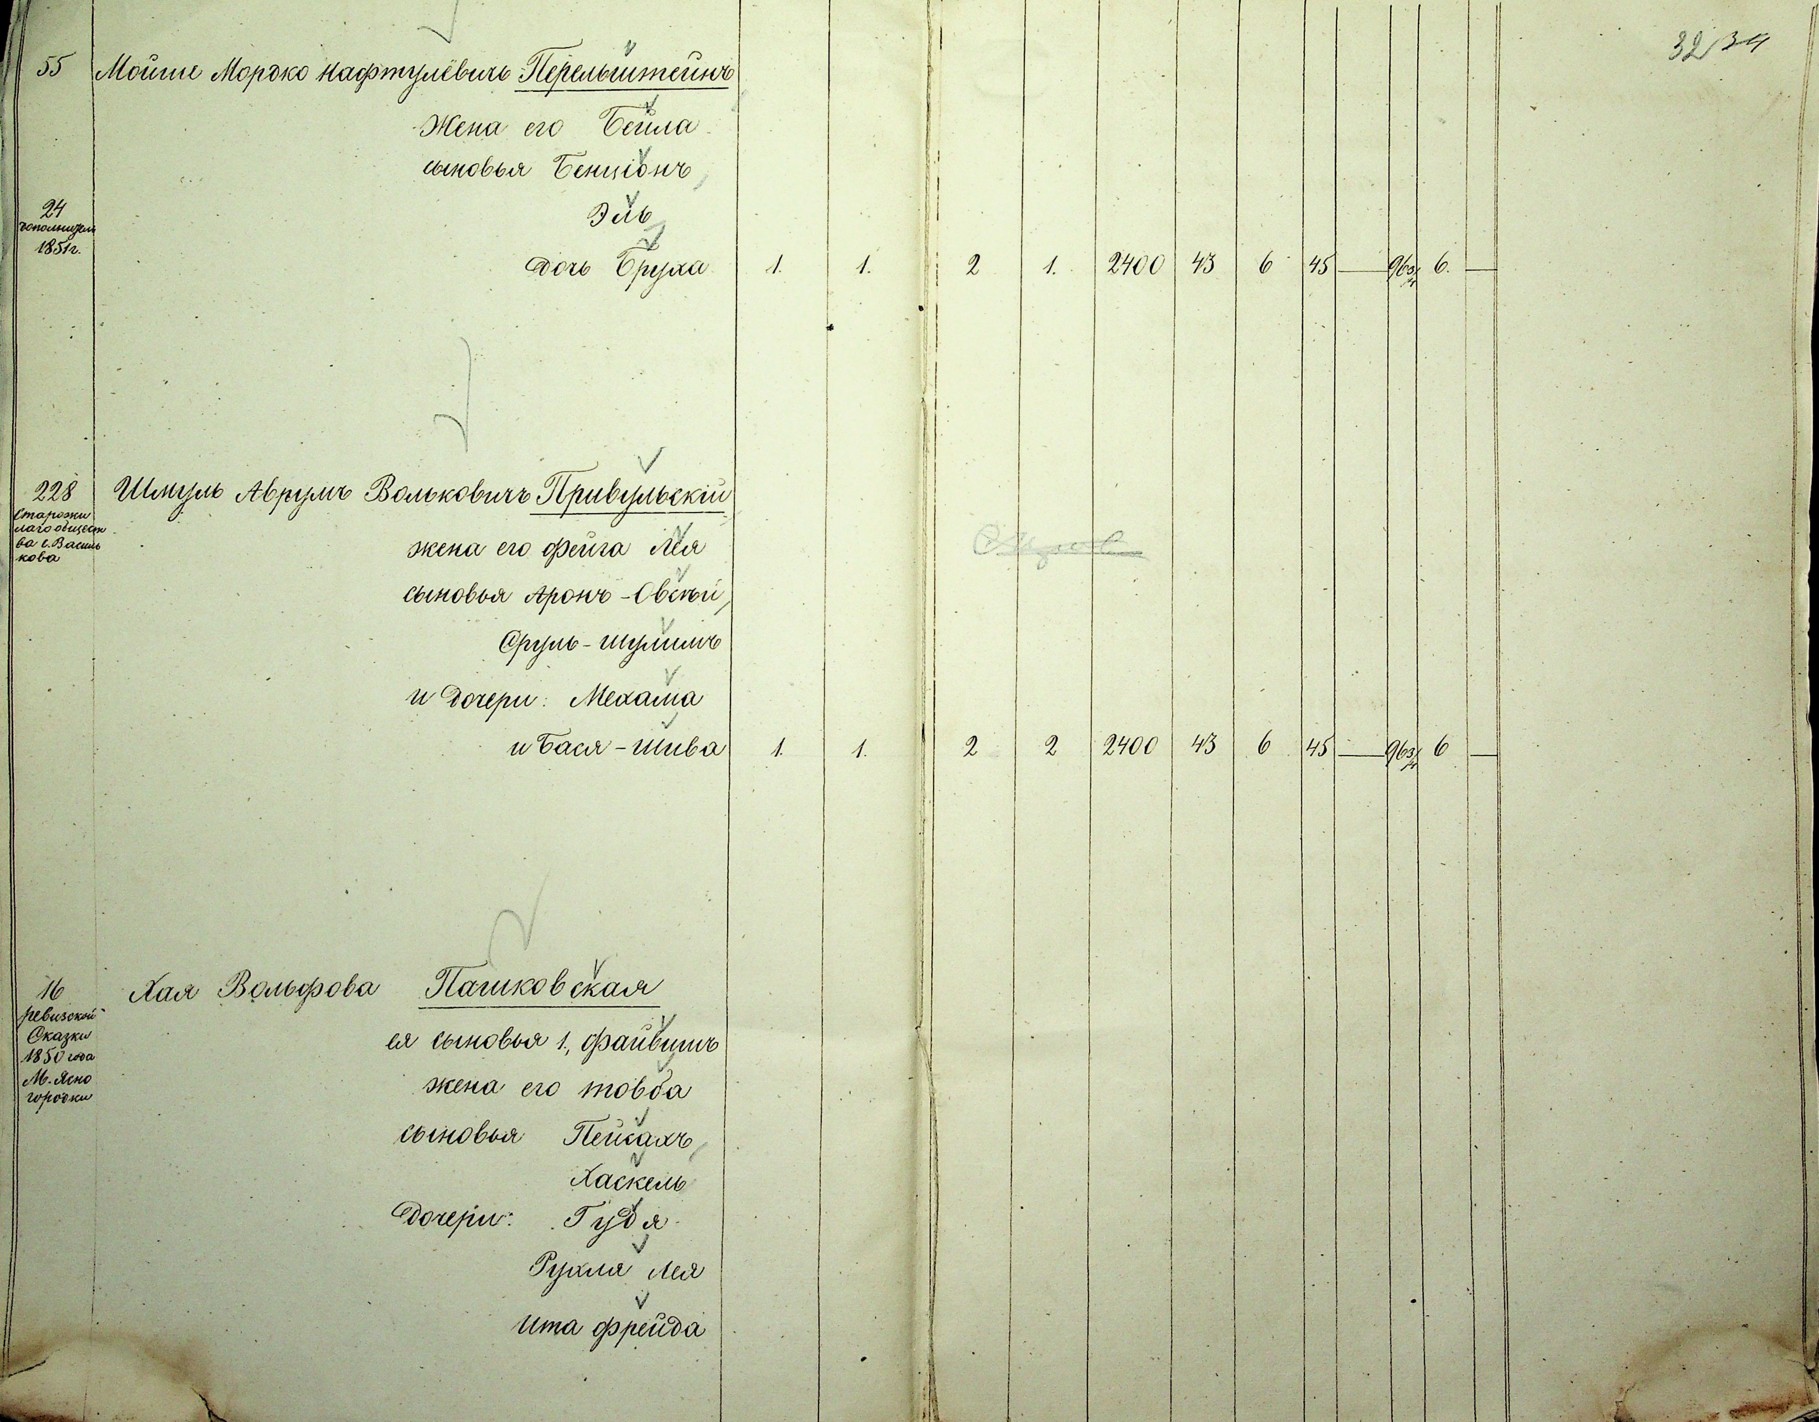 32 34
55 Мойше Мордко Нафтулёвичь Перельштейнъ
Жена его Бейла
сыновья Бенціонъ,
24 Эль
дополнител
1851 г.
Дочь Бруха 1. 1. 2 1. 2400 43 6 45 — 96 3/4 6. —
228 Шмуль Аврумъ Вольковичъ Привульскій
Старожи
лаго общест
ва г. Василь
кова
жена его Фейга Лея
сыновья Аронъ-Овсѣй,
Сруль-Шулимъ
и Дочери: Мехама
и Бася-Шива 1. 1. 2 2 2400 43 6 45 — 96 3/4 6 —
16 Хая Вольфова Пашковская
ревизской
Сказки
1850 года
М. Ясно
городки
ея сыновья 1., Файвишъ
жена его Товба
сыновья Пейсахъ,
Хаскель
Дочери: Гудя
Рухля Лея
Ита Фрейда